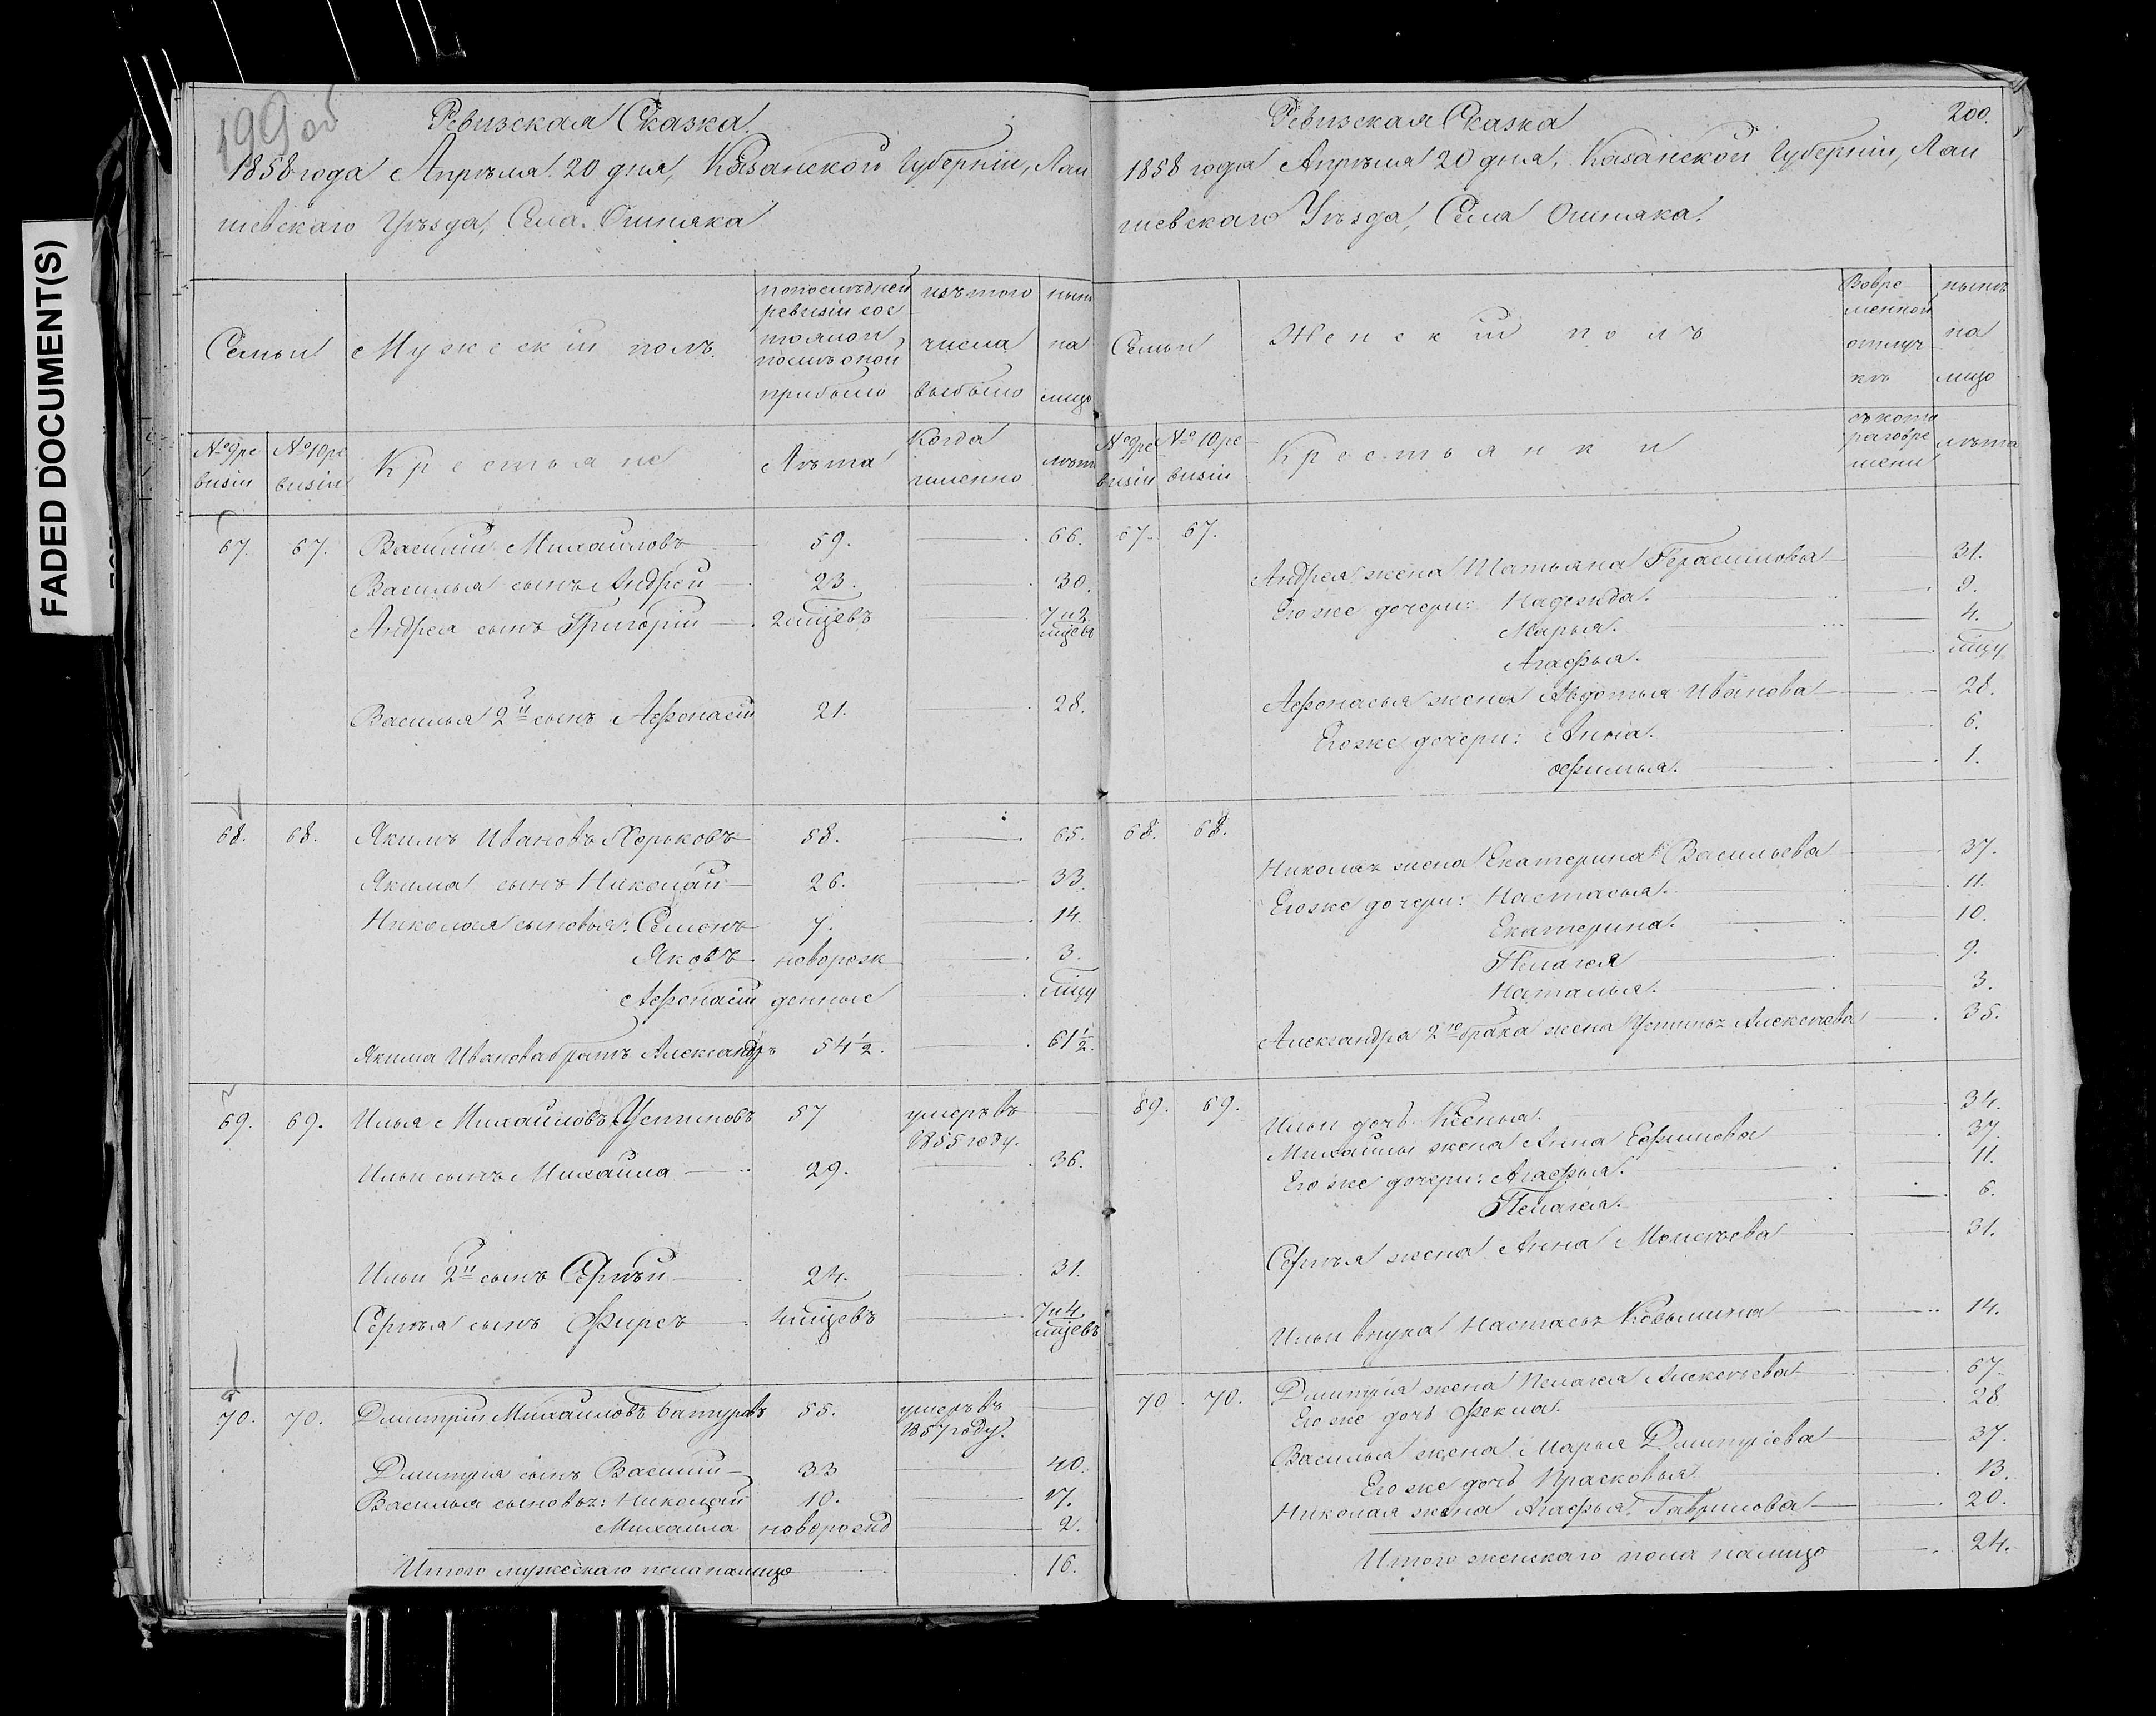 FADED DOCUMENT(S)
199 об
Ревизская Сказка.
1858 года Апрѣля 20 дня, Казанской Губерніи, Лаи
шевскаго Уѣзда, Села Ошняка
Семьи
Мужескій полъ.
по послѣдней
ревизіи сос
тояло и
послѣ оной
прибыло
изъ того
числа
выбыло
нынѣ
на
лицо
№ 9 ре
визіи
№ 10 ре
визіи
Крестьяне
Лѣта
Когда
именно
лѣта
67. 67. Василій Михайловъ 59. 66.
Василья сынъ Андрей 23. 30.
Андрея сынъ Григорій 2 мцевъ 7 и 2 мцевъ
Василья 2й сынъ Афонасій 21. 28.
68. 68. Якимъ Ивановъ Хорьковъ 58. 65.
Якима сынъ Николай 26. 33.
Николая сыновья: Семенъ 7. 14.
Яковъ новорож 3.
Афонасій денные мцу
Якима Иванова братъ Александръ 54½. 61½.
69. 69. Илья Михайловъ Устиновъ 57 умеръ въ
1855 году.
Ильи сынъ Михайла 29. 36.
Ильи 2й сынъ Сергѣй 24. 31.
Сергѣя сынъ Фирсъ 4 мцевъ 7 и 4. мцевъ
70. 70. Дмитрій Михайловъ Батуровъ 55. умеръ въ
1857 году.
Дмитрія сынъ Василій 33 40.
Василья сыновья: Николай 10. 17.
Михайла новорожд 2.
Итого мужескаго пола налицо 16.
Ревизская Сказка
200.
1858 года Апрѣля 20 дня, Казанской Губерніи, Лаи
шевскаго Уѣзда, Села Ошняка.
Семьи
Женскій полъ
Во вре
менной
отлуч
кѣ
нынѣ
на
лицо
№ 9 ре
визіи
№ 10 ре
визіи
Крестьянки
съ кото
раго вре
мени
лѣта
67. 67.
Андрея жена Татьяна Герасимова 31.
Его же дочери: Надежда. 9.
Марья. 4.
Агафья. мцу
Афонасья жена Авдотья Иванова 28.
Его же дочери: Анна. 6.
Офимья. 1.
68. 68.
Николая жена Екатерина Васильева 37.
Его же дочери: Настасья. 11.
Екатерина. 10.
Пелагея 9.
Наталья. 3.
Александра 2го брака жена Устинья Алексѣева 35.
69. 69. Ильи дочь Ксенья. 34.
Михайлы жена Анна Ефимова 37.
Его же дочери: Агафья. 11.
Пелагея. 6.
Сергѣя жена Анна Моисѣева 31.
Ильи внука Настасья Козьмина 14.
70. 70. Дмитрія жена Пелагея Алексѣева 67.
Его же дочь Фекла. 28.
Василья жена Марья Дмитріева 37.
Его же дочь Прасковья 13.
Николая жена Агафья Гаврилова 20.
Итого женскаго пола налицо 24.